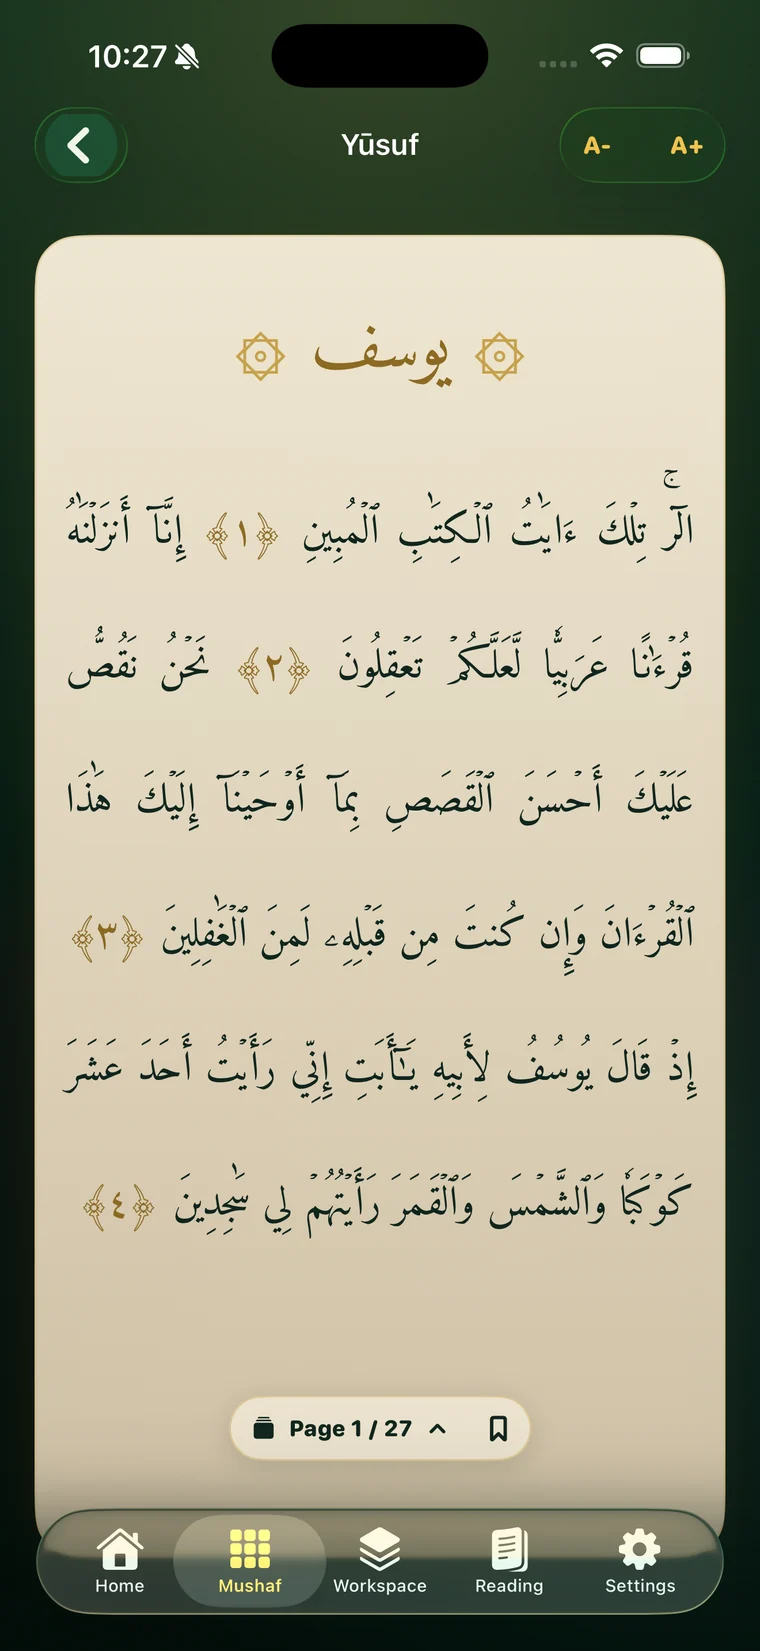 10:27
Yūsuf
A-
A+
يوسف
الٓرۚ تِلۡكَ ءَايَٰتُ ٱلۡكِتَٰبِ ٱلۡمُبِينِ ﴿١﴾ إِنَّآ أَنزَلۡنَٰهُ
قُرۡءَٰنًا عَرَبِيّٗا لَّعَلَّكُمۡ تَعۡقِلُونَ ﴿٢﴾ نَحۡنُ نَقُصُّ
عَلَيۡكَ أَحۡسَنَ ٱلۡقَصَصِ بِمَآ أَوۡحَيۡنَآ إِلَيۡكَ هَٰذَا
ٱلۡقُرۡءَانَ وَإِن كُنتَ مِن قَبۡلِهِۦ لَمِنَ ٱلۡغَٰفِلِينَ ﴿٣﴾
إِذۡ قَالَ يُوسُفُ لِأَبِيهِ يَٰٓأَبَتِ إِنِّي رَأَيۡتُ أَحَدَ عَشَرَ
كَوۡكَبٗا وَٱلشَّمۡسَ وَٱلۡقَمَرَ رَأَيۡتُهُمۡ لِي سَٰجِدِينَ ﴿٤﴾
Page 1 / 27
Home
Mushaf
Workspace
Reading
Settings